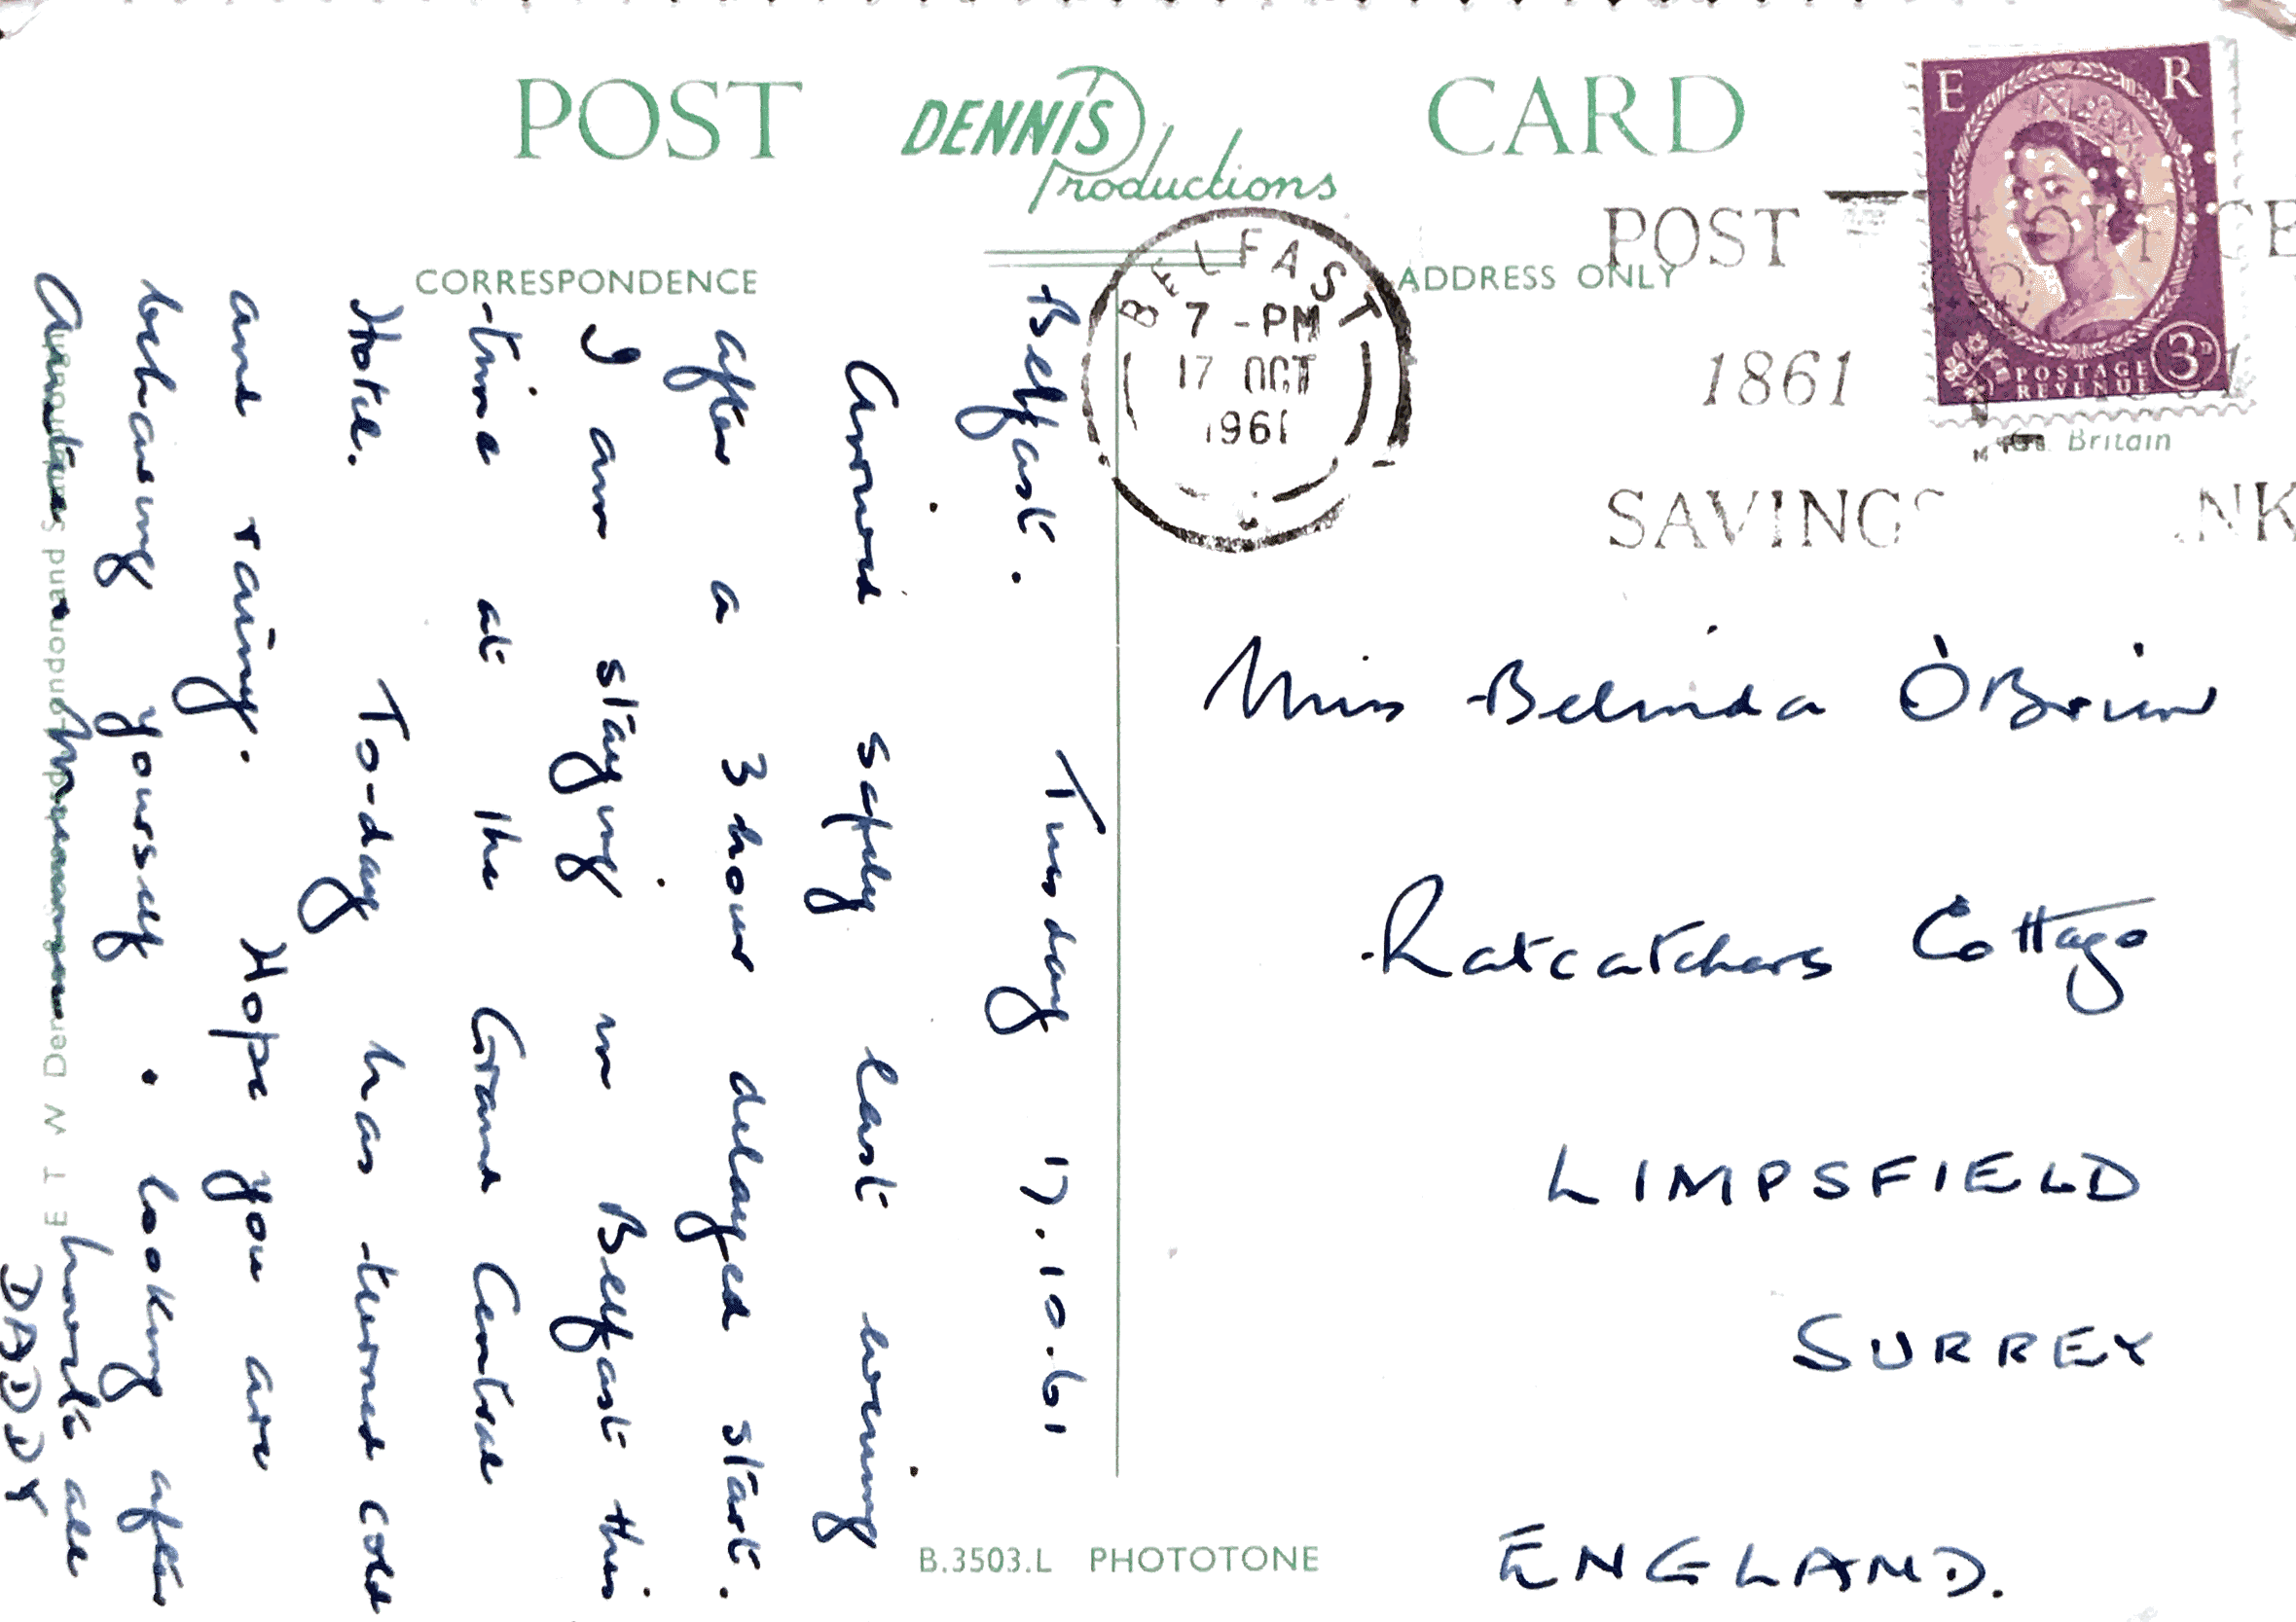 POST DENNIS Productions CARD
CORRESPONDENCE
ADDRESS ONLY
E R
POSTAGE
REVENUE
3D
BELFAST
7 - PM
17 OCT
1961
POST OFFICE
1861
SAVINGS
Britain
Belfast. Tuesday 17.10.61
Arrived safely last evening
after a 3 hour delayed start.
I am staying in Belfast this
time at the Grand Central
Hotel. To-day has turned cold
and rainy. Hope you are
behaving yourself. looking after
all
DADDY
E T W Dennis and Sons Ltd London and Scarborough
Miss Belinda O'Brien
Ratcatchers Cottage
LIMPSFIELD
SURREY
ENGLAND.
B.3503.L PHOTOTONE